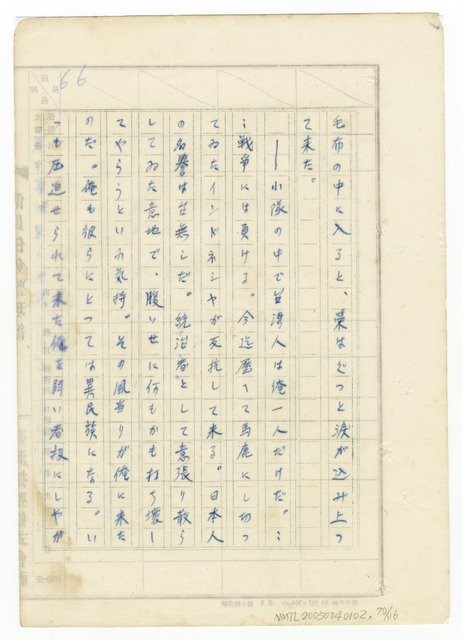 66
毛布の中に入ると、榮はぐっと涙が込み上っ
て来た。
――小隊の中で台湾人は俺一人だけだ。…
…戦争には負ける。今迄壓へて馬鹿にし切っ
てゐたインドネシヤが反抗して来る。日本人
の名誉は台無しだ。統治者として意張り散ら
してゐた意地で、腹いせに何もかも打ち壊し
てやらうといふ気持。その風当りが俺に来た
のだ。俺も彼らにとっては異民族になる。い
つも圧迫せられて来た俺を弱い者扱にしやが
NMTL20050040102, 70/116